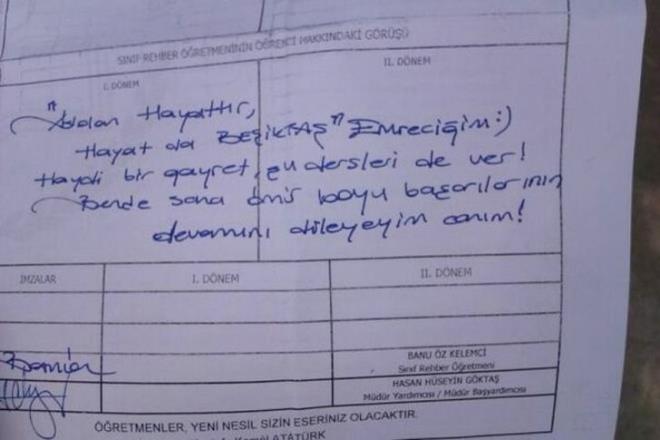 SINIF REHBER ÖĞRETMENİNİN ÖĞRENCİ HAKKINDAKİ GÖRÜŞÜ
I. DÖNEM
II. DÖNEM
Hayattır,
Hayat da BEŞİKTAŞ" Emreciğim:)
Haydi bir gayret, şu dersleri de ver!
Bende sana ömür boyu başarılarının
devamını dileyeyim canım!
İMZALAR
I. DÖNEM
II. DÖNEM
BANU ÖZ KELEMCİ
Sınıf Rehber Öğretmeni
HASAN HÜSEYİN GÖKTAŞ
Müdür Yardımcısı / Müdür Başyardımcısı
ÖĞRETMENLER, YENİ NESİL SİZİN ESERİNİZ OLACAKTIR.
Kemal ATATÜRK